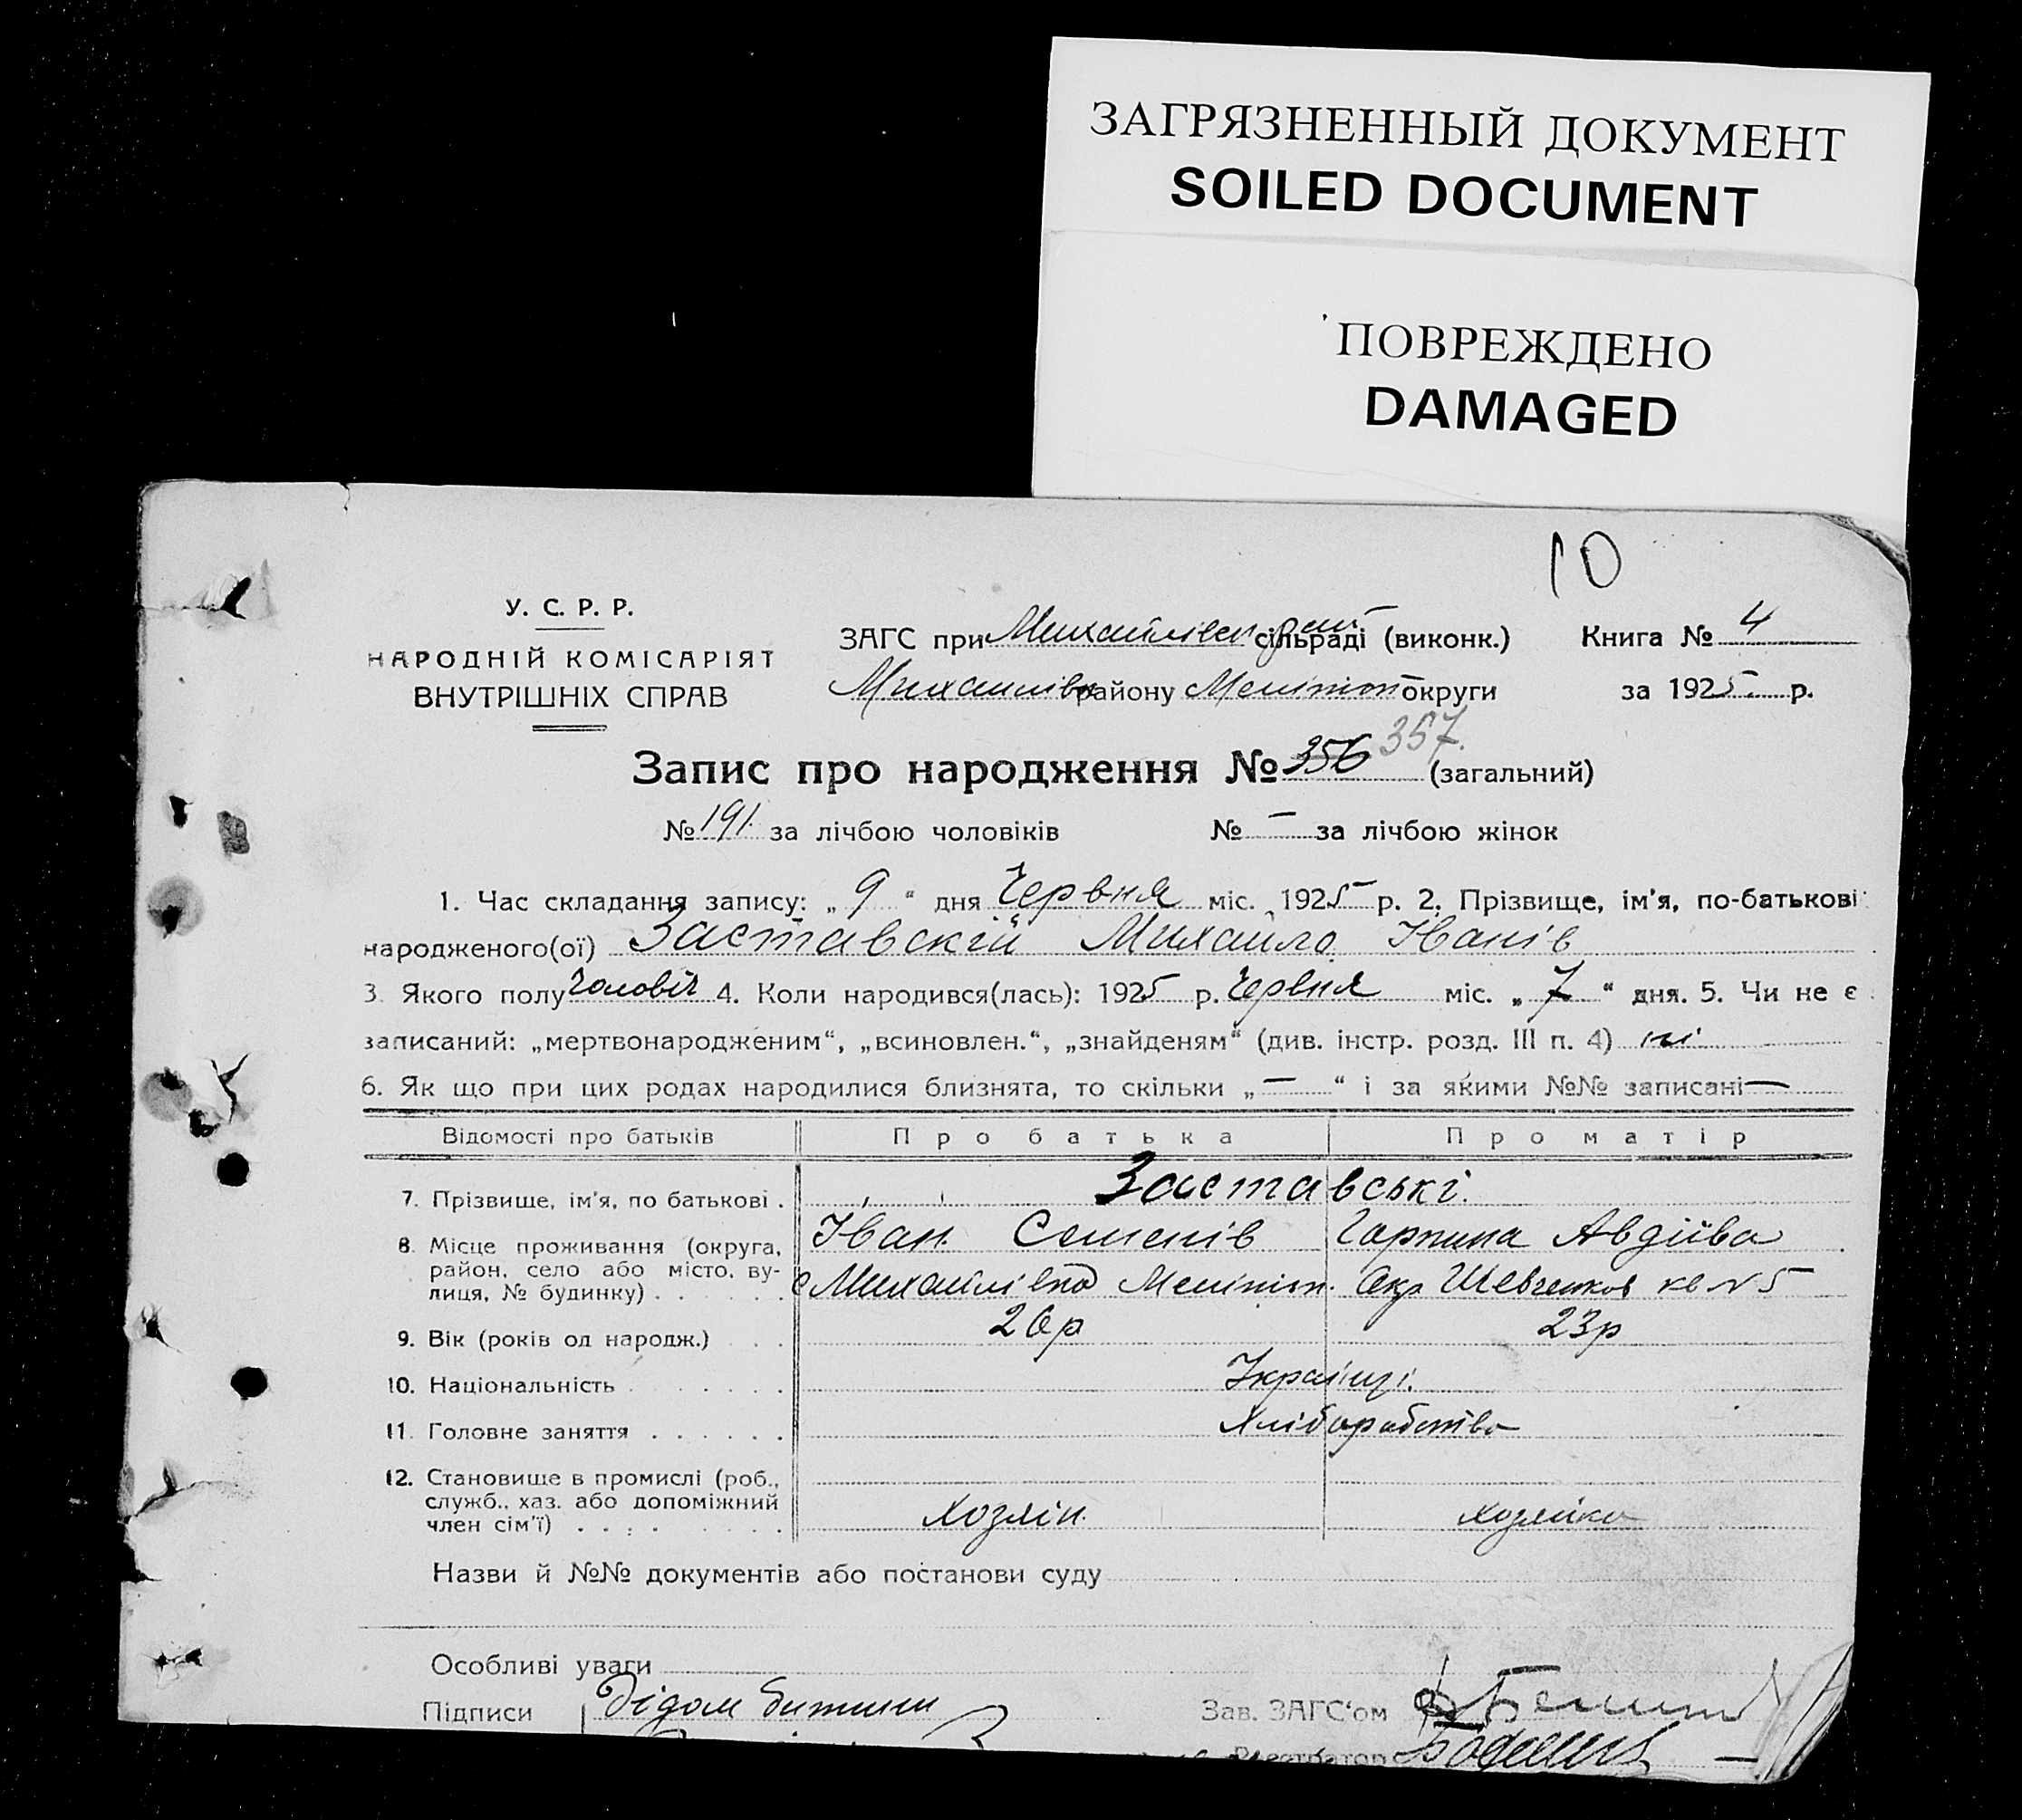 ЗАГРЯЗНЕННЫЙ ДОКУМЕНТ
SOILED DOCUMENT
ПОВРЕЖДЕНО
DAMAGED
10
У. С. Р. Р.
НАРОДНІЙ КОМІСАРІЯТ
ВНУТРІШНІХ СПРАВ
ЗАГС при Михайлівск рай сільраді (виконк.) Книга № 4
Михайлівск району Мелітоп округи за 1925 р.
Запис про народження № 356 357. (загальний)
№ 191 за лічбою чоловіків № — за лічбою жінок
1. Час складання запису: „ 9 “ дня Червня міс. 1925 р. 2. Прізвище, ім'я, по-батькові
народженого(ої) Заставскій Михайло Іванів
3. Якого полу Чоловіч 4. Коли народився(лась): 1925 р. Червня міс. „ 7 “ дня. 5. Чи не є
записаний: „мертвонародженим“, „всиновлен.“, „знайденям“ (див. інстр. розд. III п. 4) ні
6. Як що при цих родах народилися близнята, то скільки „ — “ і за якими №№ записані —
Відомості про батьків Про батька Про матір
7. Прізвище, ім'я, по батькові . Заставські.
Іван Семенів Гарпина Авдіїва
8. Місце проживання (округа,
район, село або місто, ву-
лиця, № будинку) . . . . . . с Михайлівка Мелітоп. Окр Шевченков кв № 5
9. Вік (років од народж.) . . . 26р 23р
10. Національність . . . . . . . Українці.
11. Головне заняття . . . . . . Хліборобство
12. Становище в промислі (роб.,
служб., хаз. або допоміжний
член сім'ї) . . . . . . . . . Хозяїн. хозяйка
Назви й №№ документів або постанови суду
Особливі уваги
Підписи
Зав. ЗАГС'ом
Реєстратор